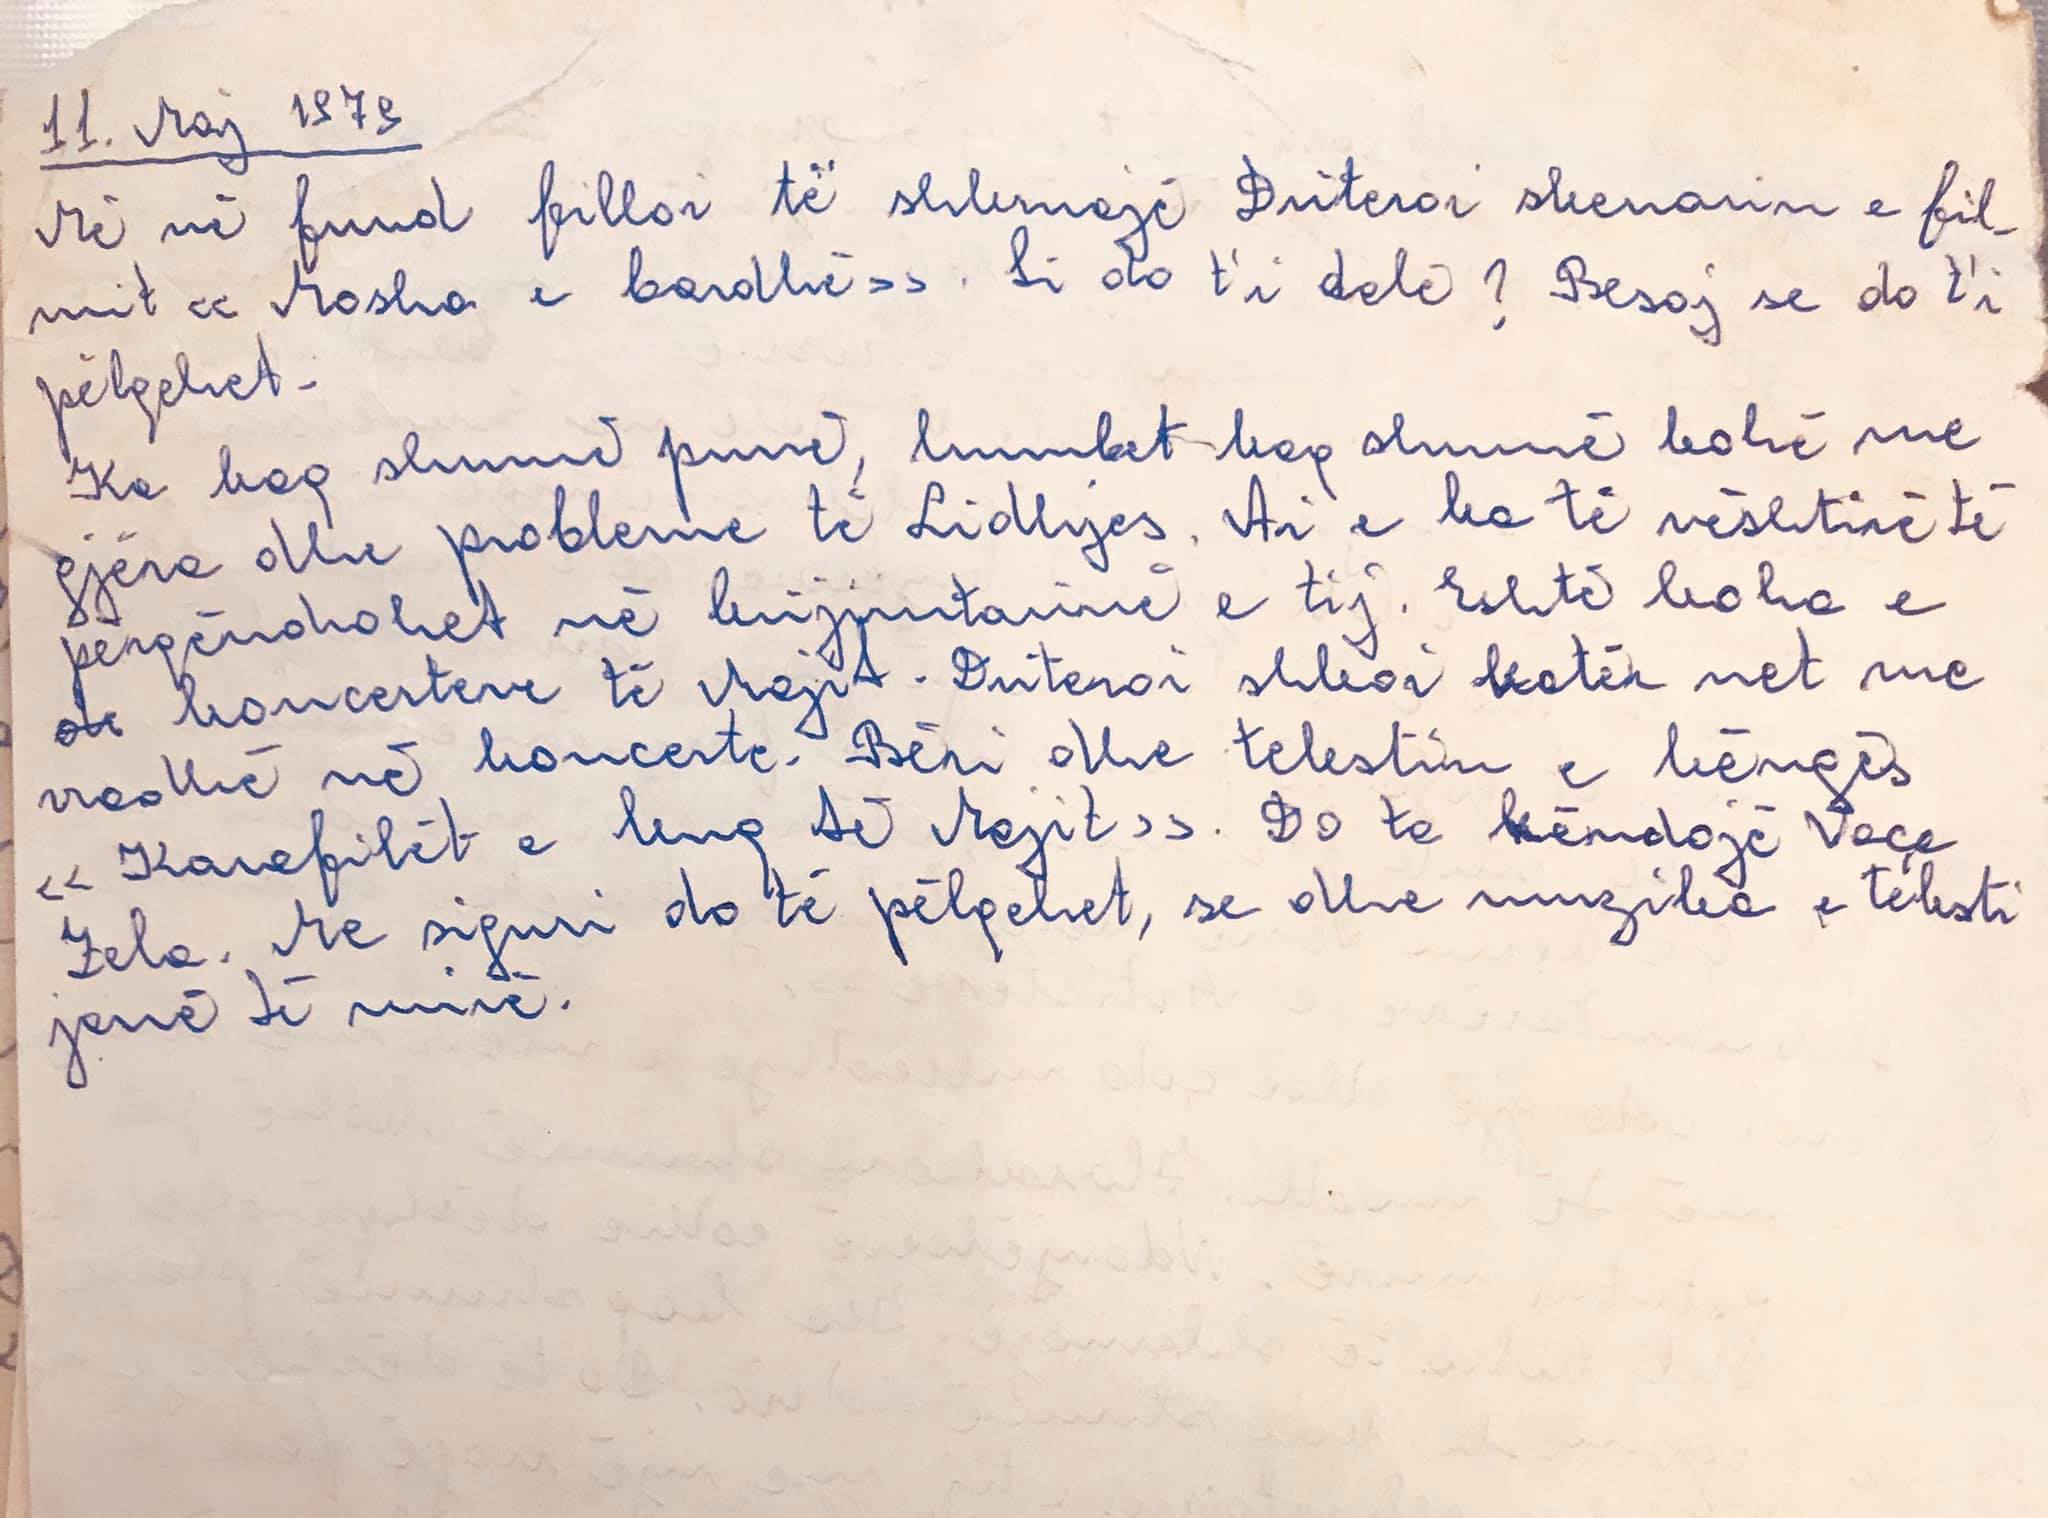 11. Maj 1979
Më në fund filloi të shkruajë Dritëroi skenarin e fil-
mit << Mosha e bardhë>>. Si do t'i dalë? Besoj se do t'i
pëlqehet.
Ka kaq shumë punë, humbet kaq shumë kohë me
gjëra dhe probleme të Lidhjes. Ai e ka të vështirë të
përqëndrohet në krijimtarinë e tij. Eshtë koha e
koncerteve të Majit. Dritëroi shkoi katër net me
radhë në koncerte. Bëri dhe tekstin e këngës
<< Karafilët e kuq të Majit>>. Do ta këndojë Vaçe
Zela. Me siguri do të pëlqehet, se dhe muzika e teksti
janë të mirë.